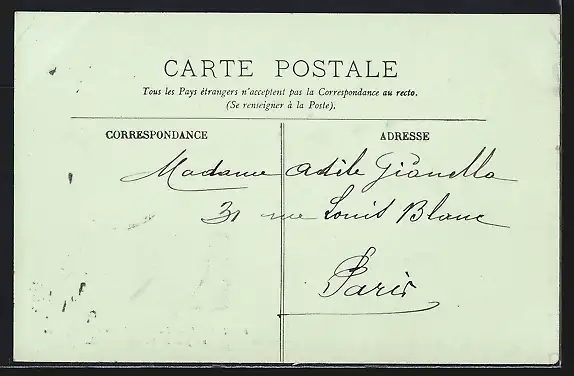 CARTE POSTALE
Tous les Pays étrangers n'acceptent pas la Correspondance au recto.
(Se renseigner à la Poste).
CORRESPONDANCE
ADRESSE
Madame Adile Gianella
31 rue Louis Blanc
Paris